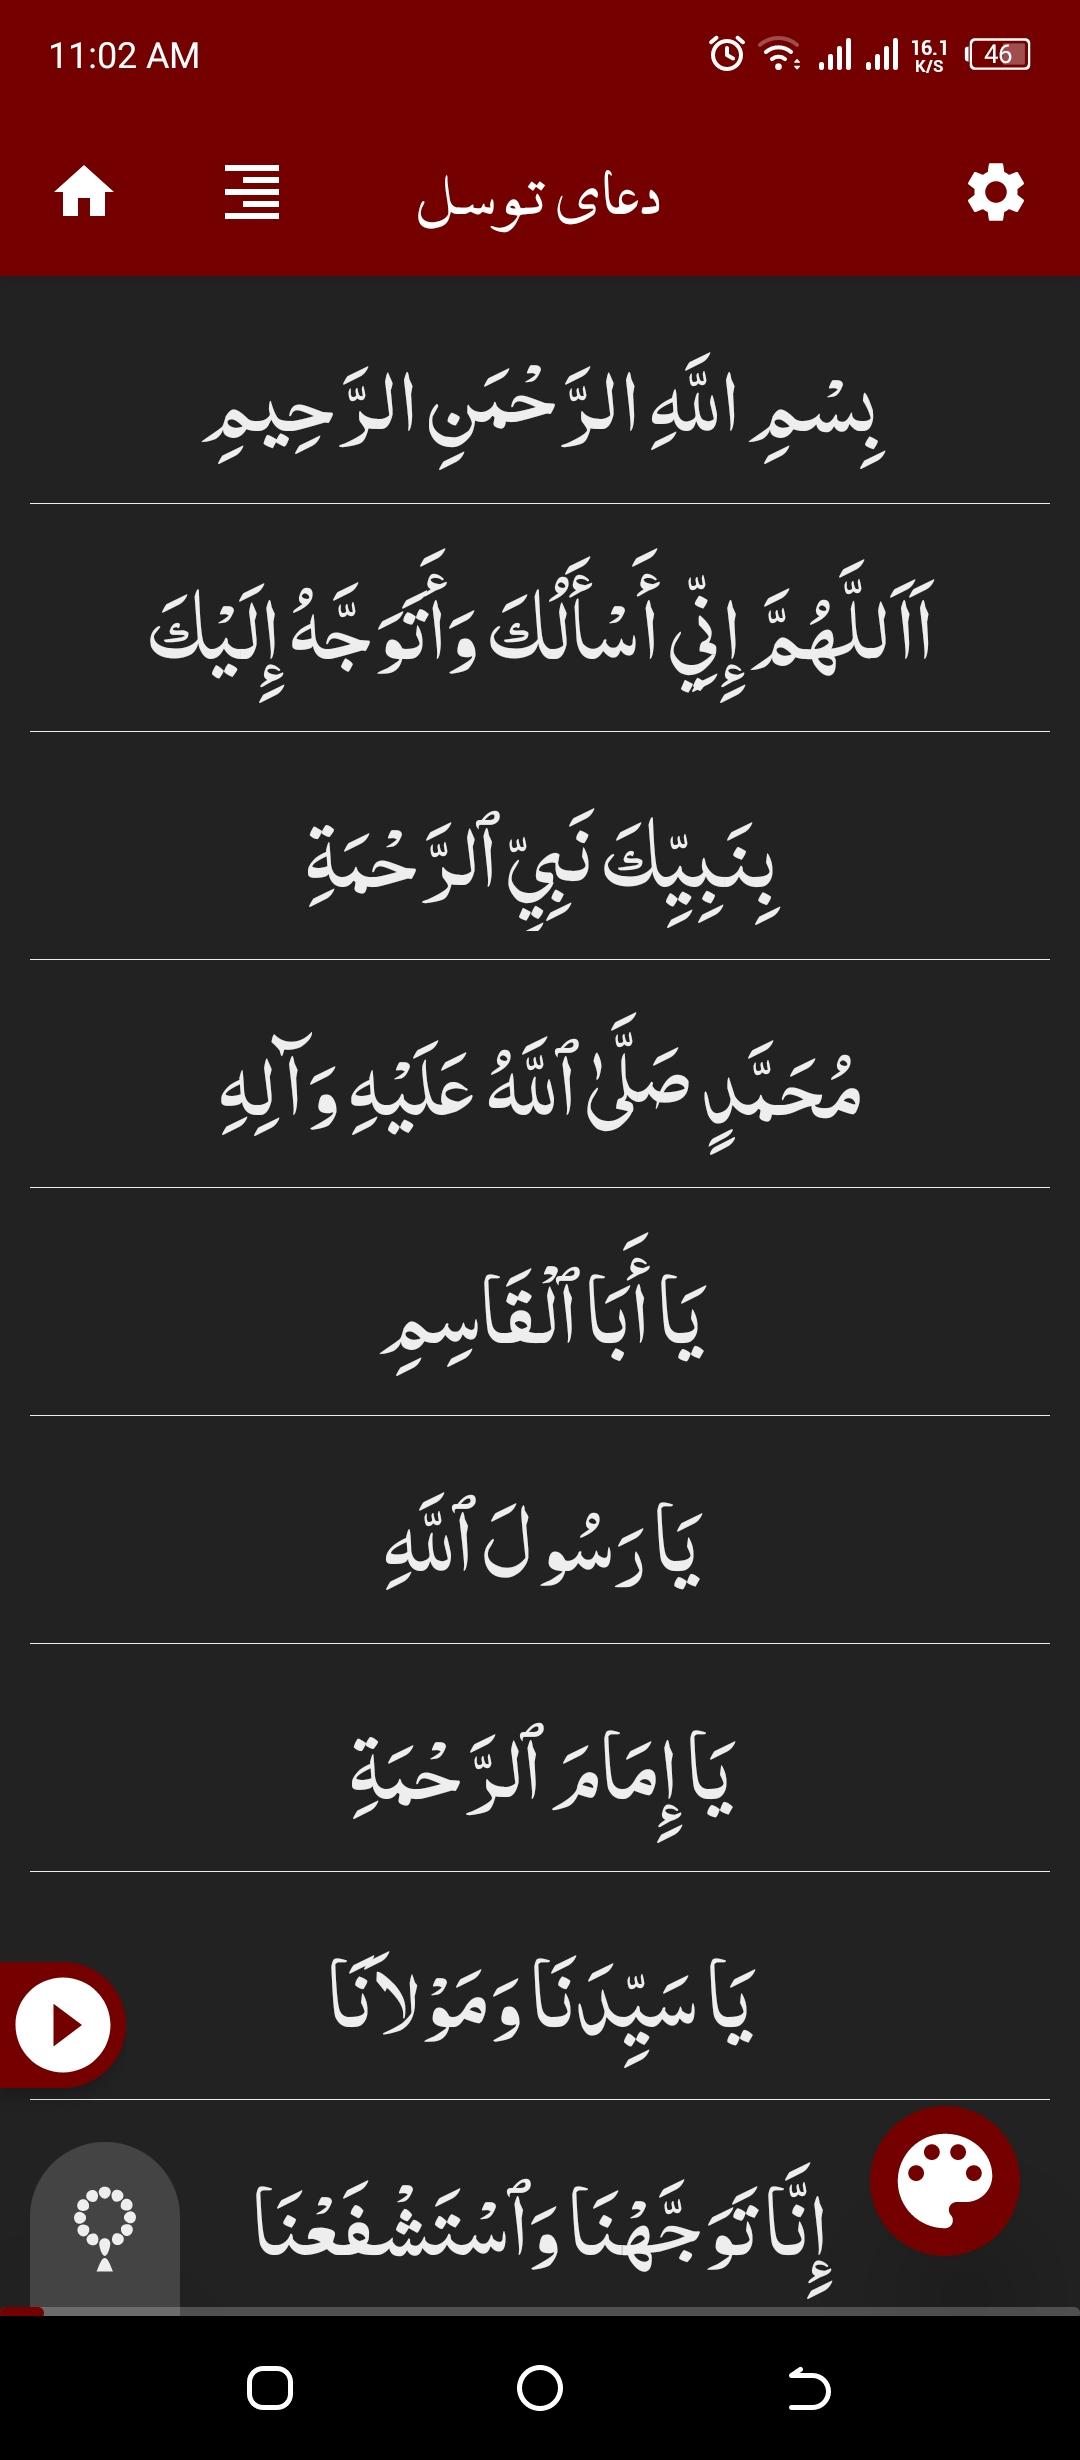 11:02 AM
16.1
K/S
46
دعای توسل
بِسْمِ اللَّهِ الرَّحْمَنِ الرَّحِيمِ
اَاَللَّهُمَّ إِنِّي أَسْأَلُكَ وَأَتَوَجَّهُ إِلَيْكَ
بِنَبِيِّكَ نَبِيِّ ٱلرَّحْمَةِ
مُحَمَّدٍ صَلَّىٰ ٱللَّهُ عَلَيْهِ وَآلِهِ
يَا أَبَا ٱلْقَاسِمِ
يَا رَسُولَ ٱللَّهِ
يَا إِمَامَ ٱلرَّحْمَةِ
يَا سَيِّدَنَا وَمَوْلاَنَا
إِنَّا تَوَجَّهْنَا وَٱسْتَشْفَعْنَا